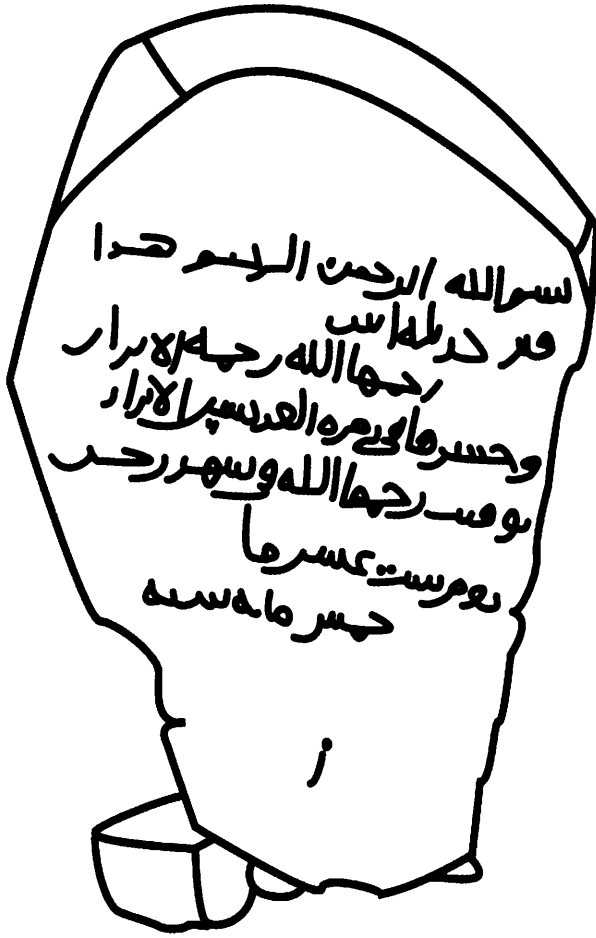 بسم الله الرحمن الرحيم هذا
قبر خديجة ابنت
رحمها الله رحمة الابرار
وحشرها في زمرة القديسين الابرار
توفيت رحمها الله في شهر رجب
يوم ست عشر ما
خمس مائة سنة